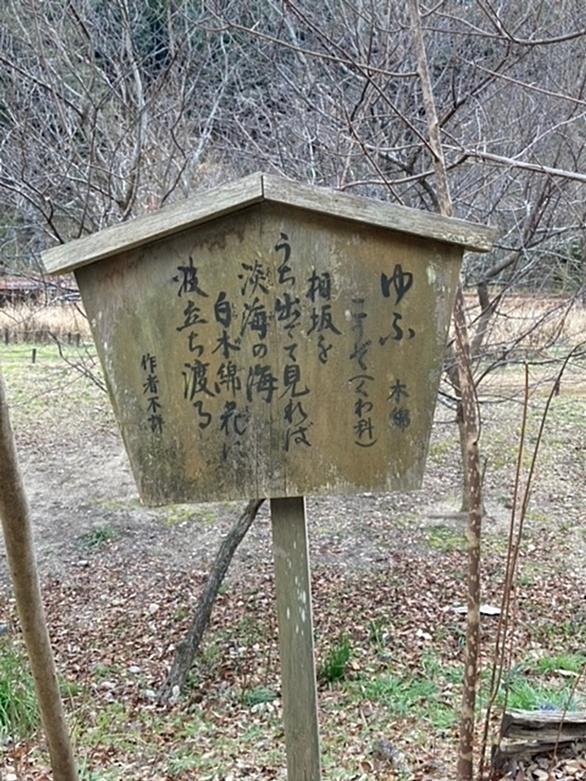 ゆふ 木綿
こうぞ(くわ科)
相坂を
うち出でて見れば
淡海の海
白木綿花に
波立ち渡る
作者不詳